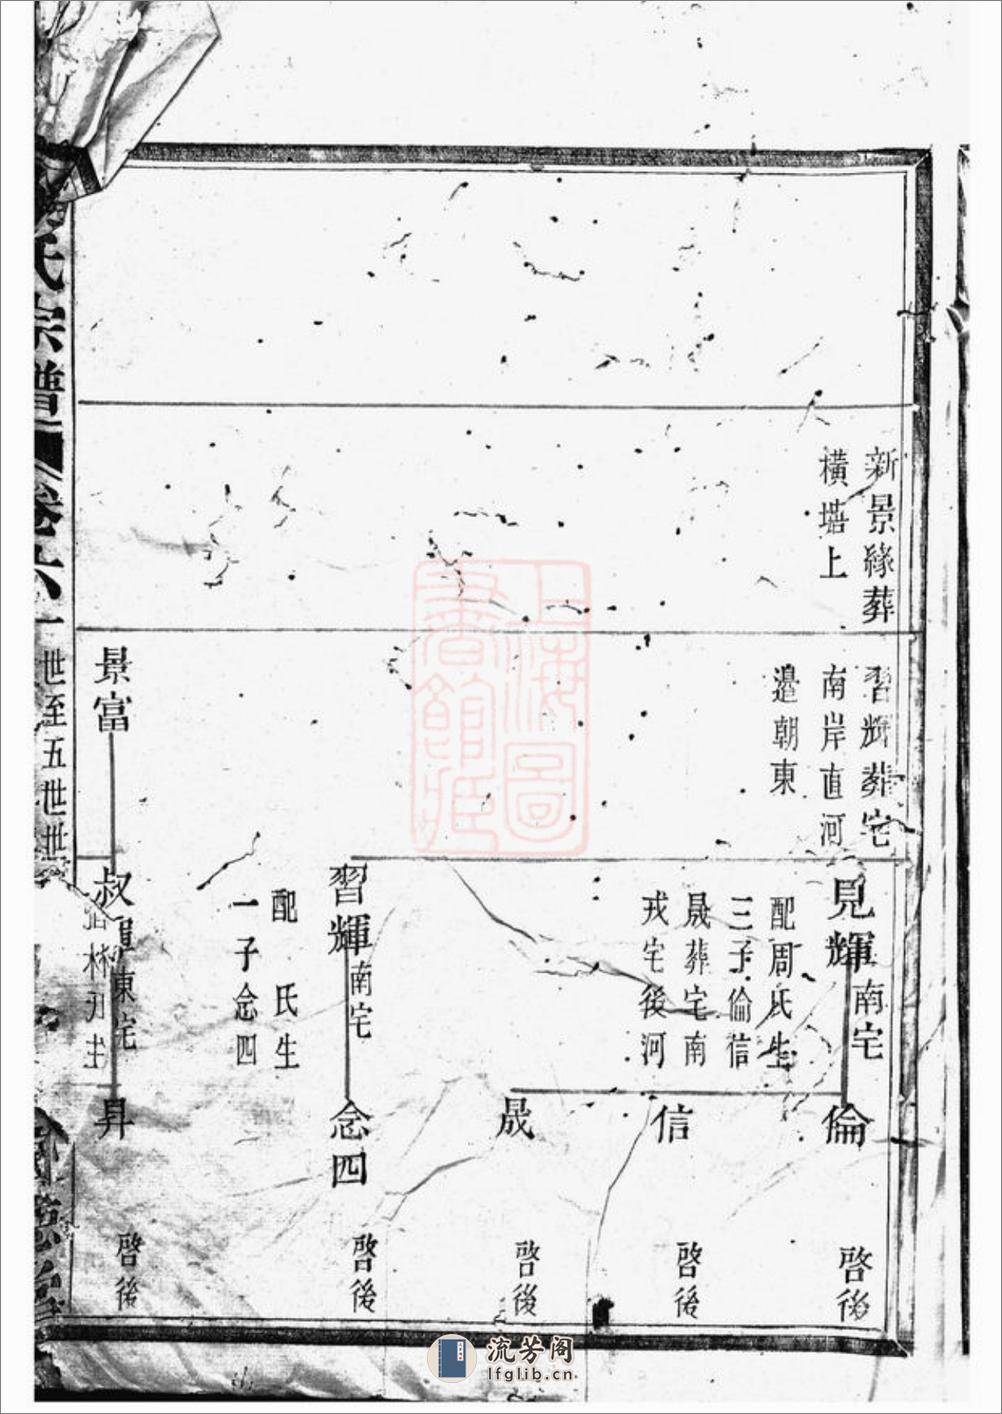 新景緣葬
橫塘上
習輝葬宅
南岸直河
邉朝東
見輝
南宅
配周氏生
三子倫信
晟葬宅南
戎宅後河
習輝
南宅
配 氏生
一子念四
景富
叔
東宅
倫
信
晟
念四
昇
啓後
啓後
啓後
啓後
啓後
氏宗譜
卷六
一世至五世世
上海圖書館藏
流芳阁
lfglib.cn